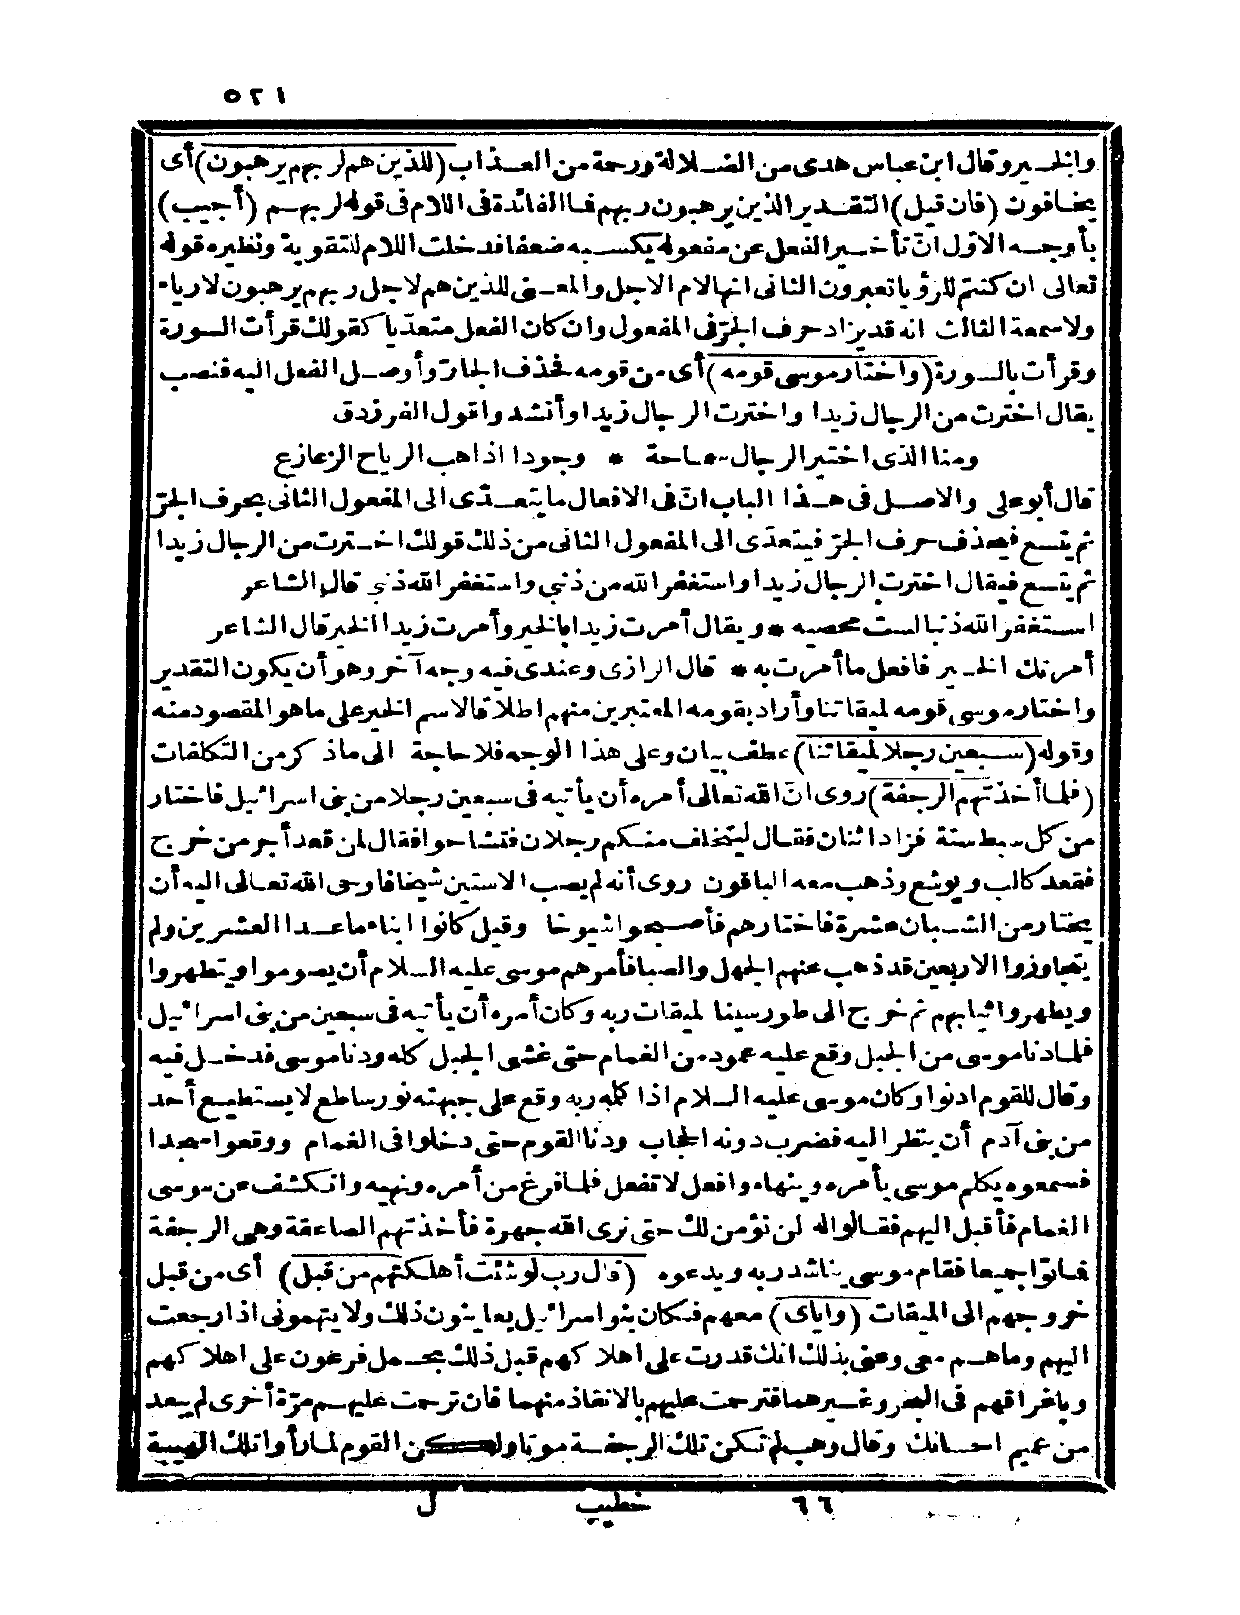 ٥٢١
والخير وقال ابن عباس هدى من الضلالة ورحمة من العذاب (للذين هم لربهم يرهبون) أى
يخافون (فان قيل) التقدير الذين يرهبون ربهم فما الفائدة فى اللام فى قوله لربهم (أجيب)
بأوجه الاوّل انّ تأخير الفعل عن مفعوله يكسبه ضعفا فدخلت اللام للتقوية ونظيره قوله
تعالى ان كنتم للرؤيا تعبرون الثانى انها لام الاجل والمعنى للذين هم لاجل ربهم يرهبون لا رياء
ولا سمعة الثالث انه قد يزاد حرف الجرّ فى المفعول وان كان الفعل متعدّيا كقولك قرأت السورة
وقرأت بالسورة (واختار موسى قومه) أى من قومه فحذف الجارّ وأوصل الفعل اليه فنصب
يقال اخترت من الرجال زيدا واخترت الرجال زيدا وأنشدوا قول الفرزدق
ومنا الذى اختير الرجال سماحة * وجودا اذا هب الرياح الزعازع
قال أبو على والاصل فى هذا الباب انّ فى الافعال ما يتعدّى الى المفعول الثانى بحرف الجرّ
ثم يتسع فيحذف حرف الجرّ فيتعدّى الى المفعول الثانى من ذلك قولك اخترت من الرجال زيدا
ثم يتسع فيقال اخترت الرجال زيدا واستغفر الله من ذنبى واستغفر الله ذنبى قال الشاعر
استغفر الله ذنبا لست محصيه * ويقال أمرت زيدا بالخير وأمرت زيدا الخير قال الشاعر
أمرتك الخير فافعل ما أمرت به * قال الرازى وعندى فيه وجه آخر وهو أن يكون التقدير
واختار موسى قومه لميقاتنا وأراد بقومه المعتبرين منهم اطلاقا لاسم الخير على ما هو المقصود منه
وقوله (سبعين رجلا لميقاتنا) عطف بيان وعلى هذا الوجه فلا حاجة الى ما ذكر من التكلفات
(فلما أخذتهم الرجفة) روى انّ الله تعالى أمره أن يأتيه فى سبعين رجلا من بنى اسرائيل فاختار
من كل سبط ستة فزاد اثنان فقال ليتخلف منكم رجلان فتشاحوا فقال لمن قعد أجر من خرج
فقعد كالب ويوشع وذهب معه الباقون روى أنه لم يصب الا ستين شيخا فاوحى الله تعالى اليه أن
يختار من الشبان عشرة فاختارهم فأصبحوا شيوخا وقيل كانوا ابناء ما عدا العشرين ولم
يتجاوزوا الاربعين قد ذهب عنهم الجهل والصبا فأمرهم موسى عليه السلام أن يصوموا ويتطهروا
ويطهروا ثيابهم ثم خرج الى طور سينا لميقات ربه وكان أمره أن يأتيه فى سبعين من بنى اسرائيل
فلما دنا موسى من الجبل وقع عليه عمود من الغمام حتى غشى الجبل كله ودنا موسى فدخل فيه
وقال للقوم ادنوا وكان موسى عليه السلام اذا كلمه ربه وقع على جبهته نور ساطع لا يستطيع أحد
من بنى آدم أن ينظر اليه فضرب دونه الحجاب ودنا القوم حتى دخلوا فى الغمام ووقعوا سجدا
فسمعوه يكلم موسى يأمره وينهاه وافعل لا تفعل فلما فرغ من أمره ونهيه وانكشف عن موسى
الغمام فأقبل اليهم فقالوا له لن نؤمن لك حتى نرى الله جهرة فأخذتهم الصاعقة وهى الرجفة
فماتوا جميعا فقام موسى يناشد ربه ويدعوه (قال رب لو شئت أهلكتهم من قبل) أى من قبل
خروجهم الى الميقات (واياى) معهم فكان بنو اسرائيل يعاينون ذلك ولا يتهمونى اذا رجعت
اليهم وما هم معى وعنى بذلك انك قدرت على اهلاكهم قبل ذلك بحمل فرعون على اهلاكهم
وباغراقهم فى البحر وغيرهما فترحمت عليهم بالانقاذ منهما فان ترحمت عليهم مرّة أخرى لم يبعد
من عميم احسانك وقال وهب لم تكن تلك الرجفة موتا ولكن القوم لما رأوا تلك الهيبة
٦٦ خطيب ل